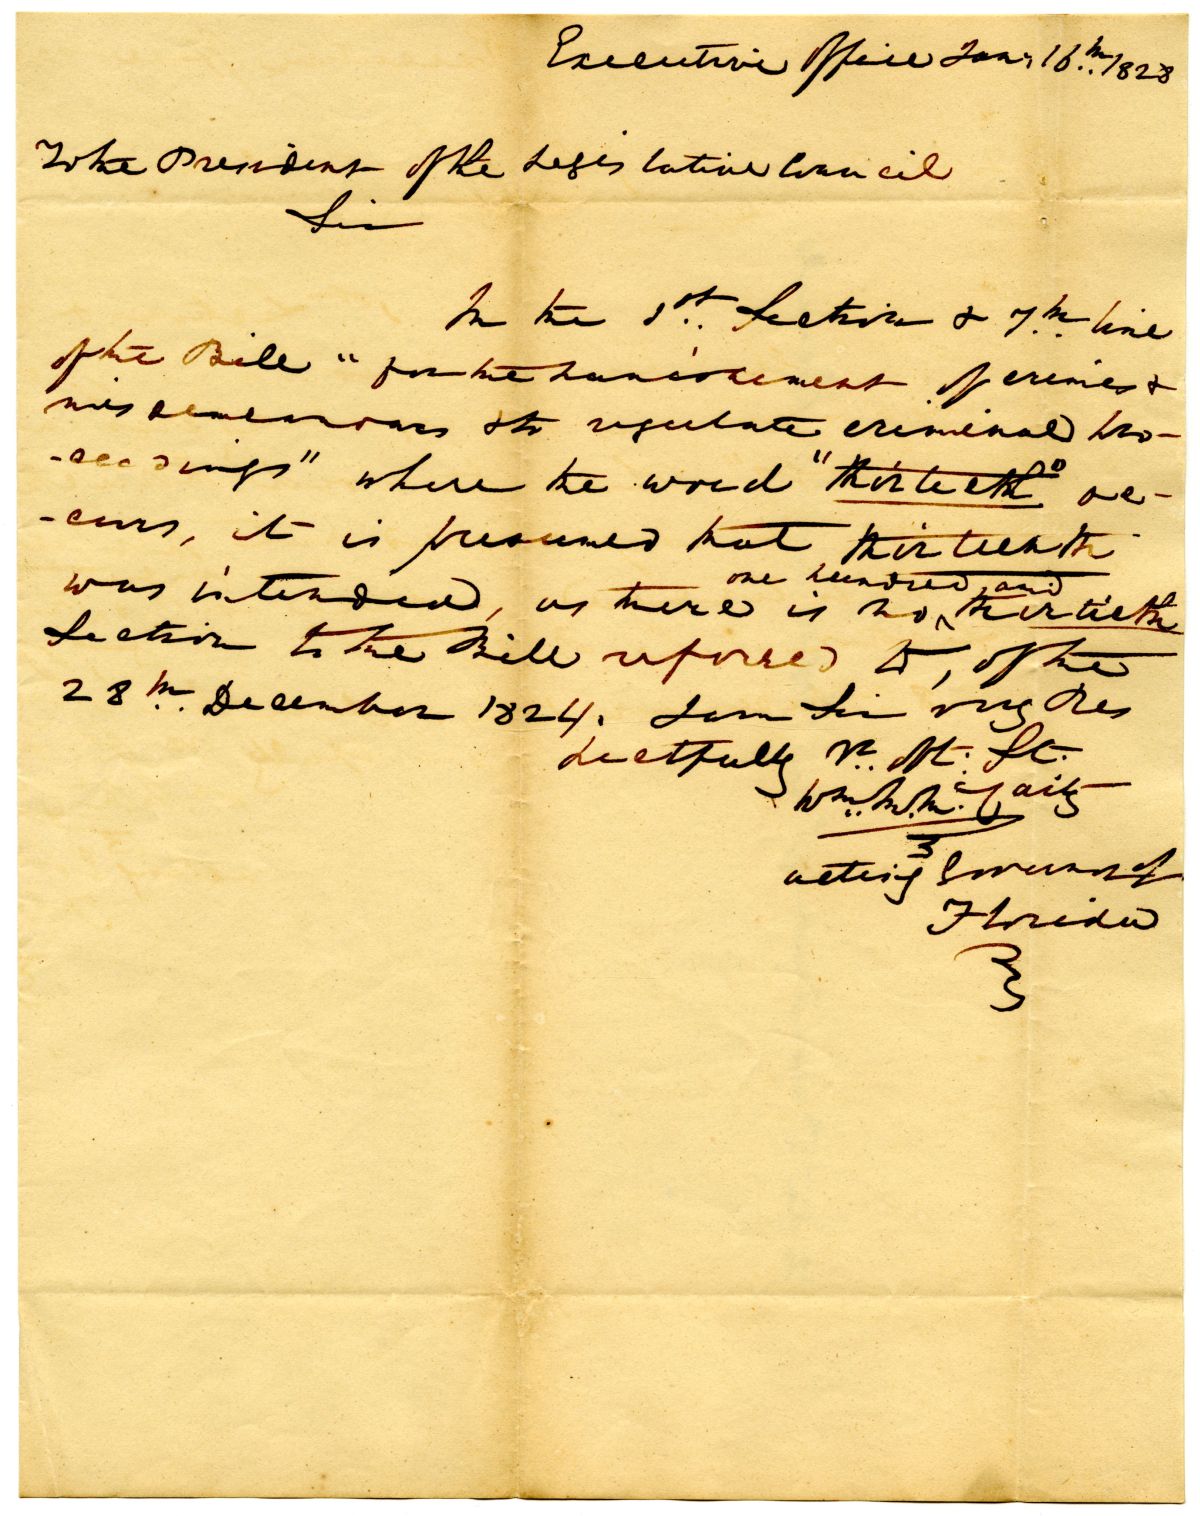 Executive Office Jan. 16th. 1828
To the President of the Legislative Council
Sir
In the 1st. Section & 7th. line
of the Bill "for the punishment of crimes &
misdemeanours & to regulate criminal pro-
-ceedings" where the word "thirtieth" oc-
-curs, it is presumed that thirteenth
was intended, as there is no one hundred and thirtieth
Section to the Bill referred to, of the
28th. December 1824. I am Sir very Res
pectfully Yr. Obt. St.
Wm. M. McCarty
acting Governor of
Florida